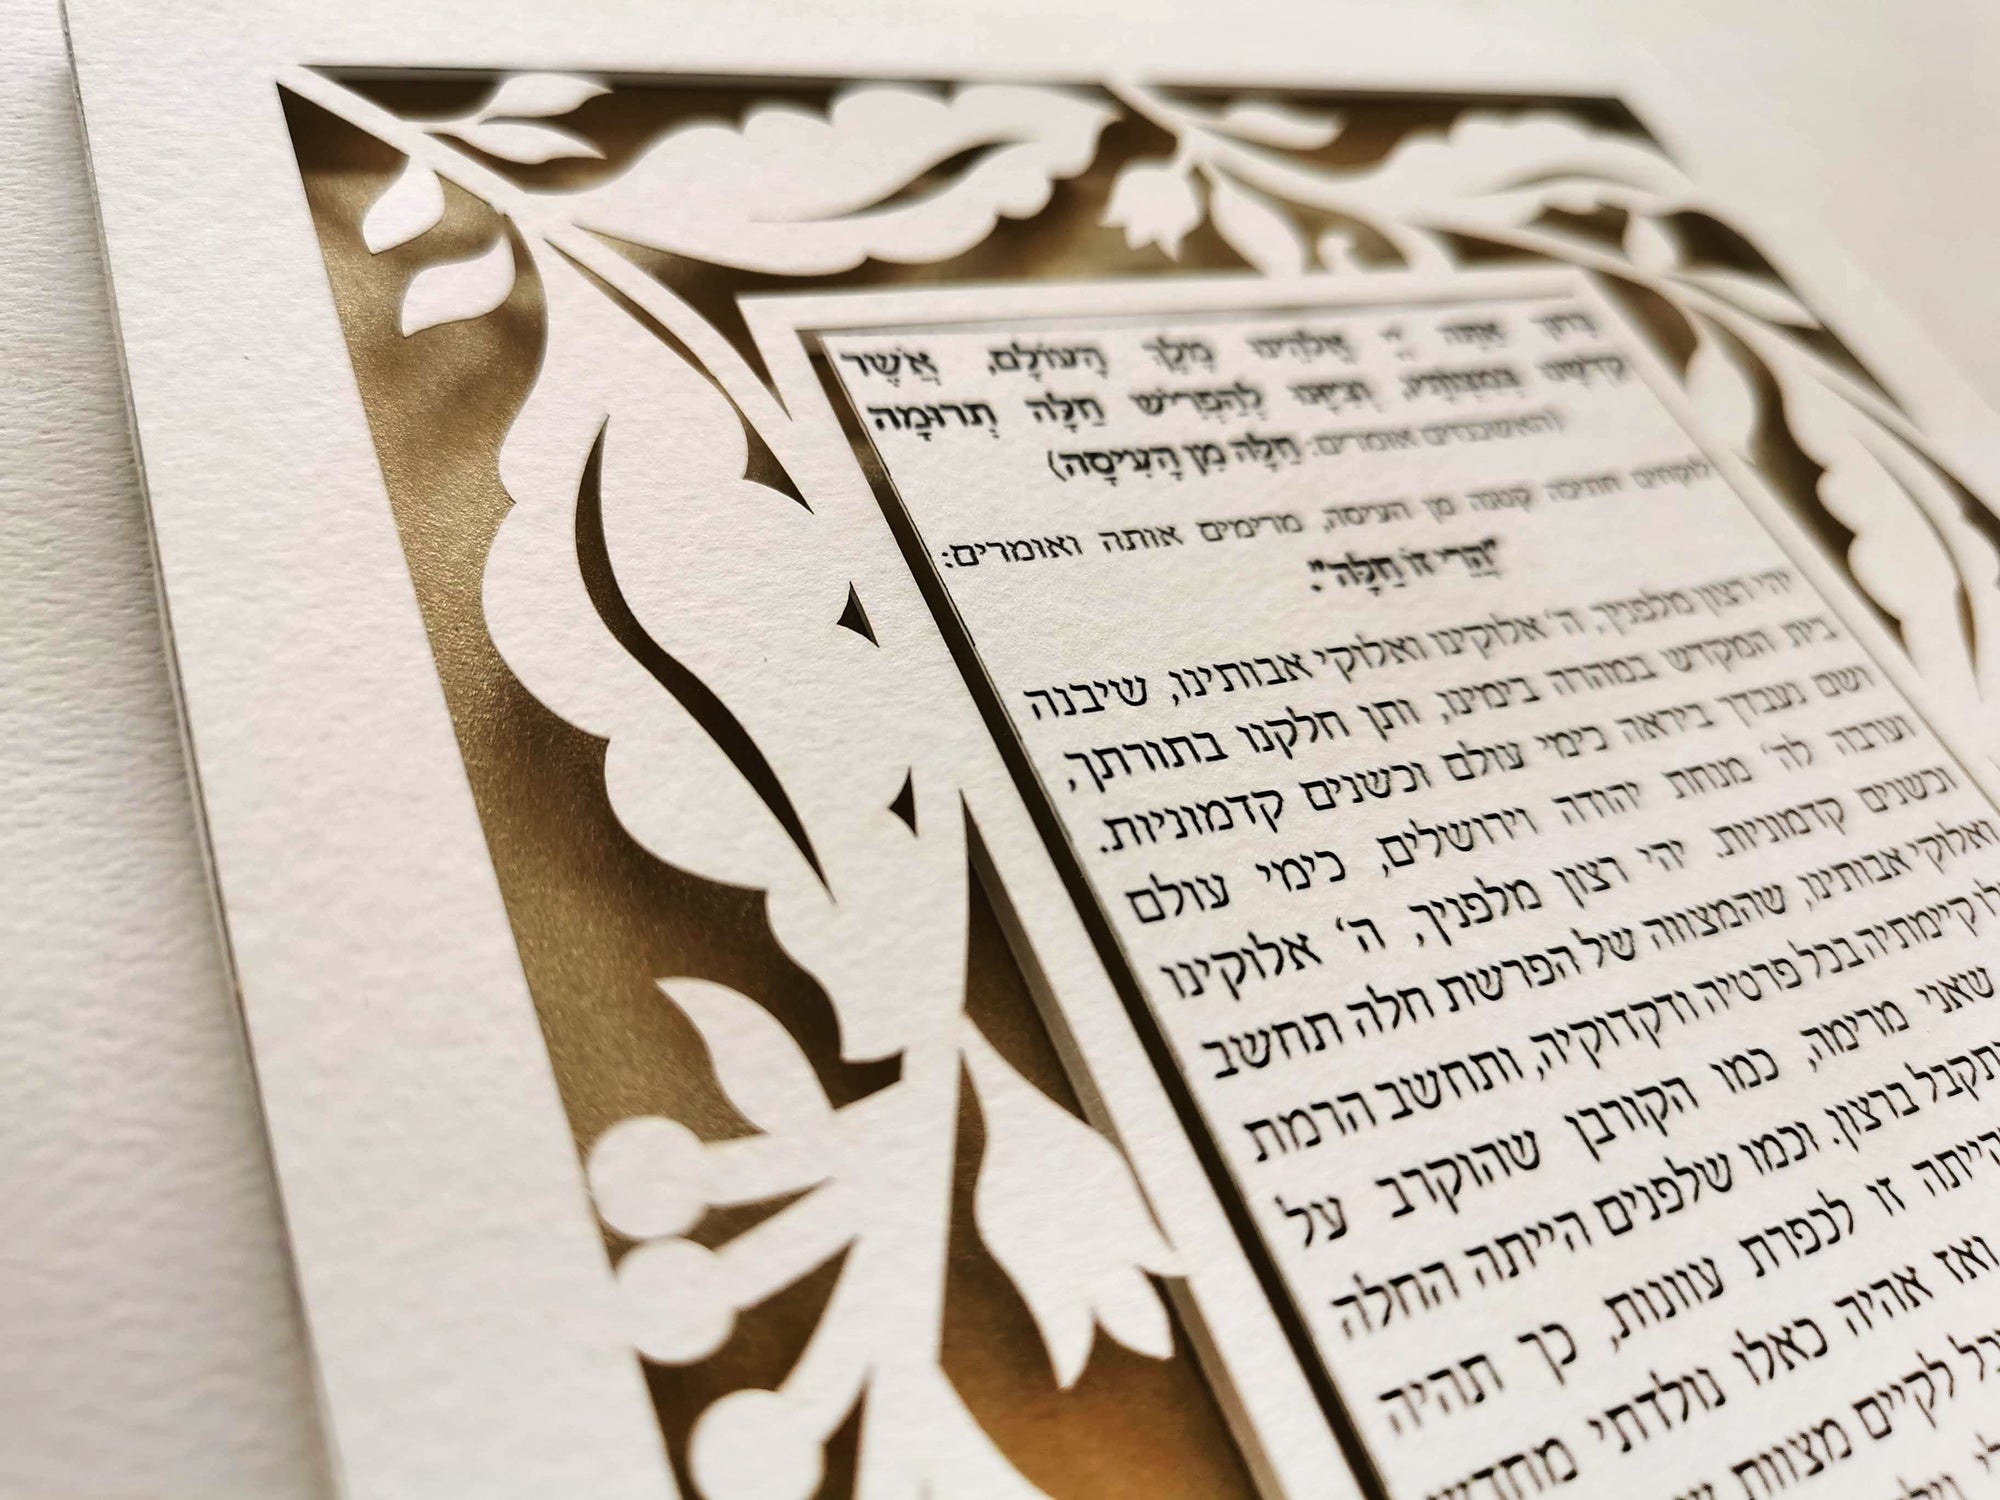 ברוך אתה יְיָ אֱלֹהֵינוּ מֶלֶךְ הָעוֹלָם, אֲשֶׁר
קִדְּשָׁנוּ בְּמִצְוֹתָיו, וְצִוָּנוּ לְהַפְרִישׁ חַלָּה תְּרוּמָה
(האשכנזים אומרים: חַלָּה מִן הָעִיסָה)
לוקחים חתיכה קטנה מן העיסה, מרימים אותה ואומרים:
"הֲרֵי זוֹ חַלָּה".
יהי רצון מלפניך, ה' אלוקינו ואלוקי אבותינו, שיבנה
בית המקדש במהרה בימינו, ותן חלקנו בתורתך,
ושם נעבדך ביראה כימי עולם וכשנים קדמוניות.
וערבה לה' מנחת יהודה וירושלים, כימי עולם
וכשנים קדמוניות. יהי רצון מלפניך, ה' אלוקינו
ואלוקי אבותינו, שהמצווה של הפרשת חלה תחשב
קיימתיה בכל פרטיה ודקדוקיה, ותחשב הרמת
שאני מרימה, כמו הקורבן שהוקרב על
ברצון. וכמו שלפנים הייתה החלה
זו לכפרת עוונות, כך תהיה
ואז אהיה כאלו נולדתי
לקיים מצוות